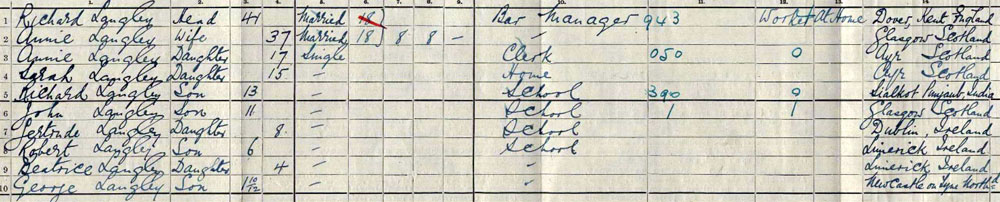 1 Richard Langley Head 41 Married 18 Bar Manager 943 Worker At Home Dover, Kent England
2 Annie Langley Wife 37 Married 18 8 8 – – Glasgow Scotland
3 Annie Langley Daughter 17 Single Clerk 050 0 Ayr Scotland
4 Sarah Langley Daughter 15 " Home Ayr Scotland
5 Richard Langley Son 13 " School 390 0 Sialkot Punjaub, India
6 John Langley Son 11 " School 1 1 Glasgow Scotland
7 Gertrude Langley Daughter 8. " School Dublin, Ireland
8 Robert Langley Son 6 " School Limerick Ireland
9 Beatrice Langley Daughter 4 " Limerick Ireland
10 George Langley Son 1 10/12 " Newcastle on Tyne North'd